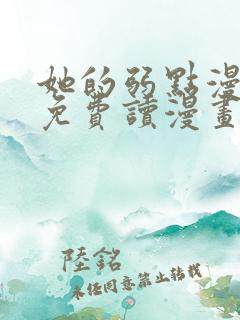 她的弱點漫
免費讀漫畫
陸銘
未經同意禁止轉載